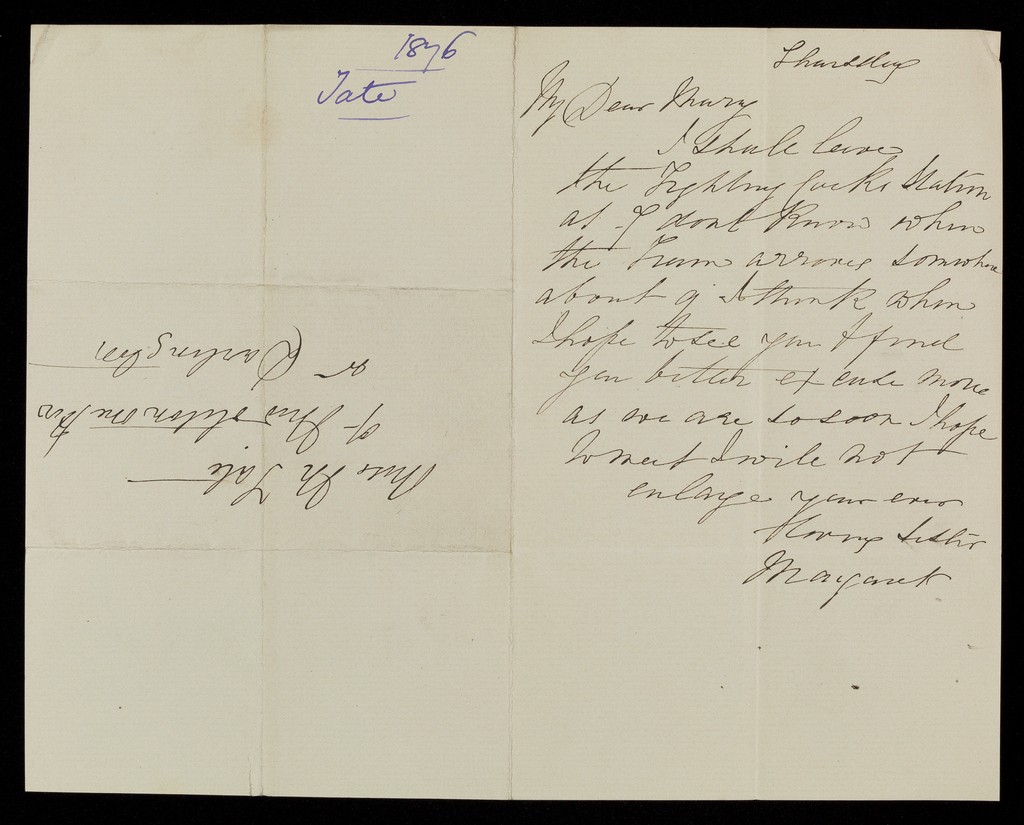 1876
Tate
Thursday
My Dear Mary
I shall leave
the Fighting Cocks Station
at I dont know when
the Train arrives somwhere
about 9 I think when
I hope to see you & find
you better excuse more
as we are so soon I hope
to meet I will not
enlarge your ever
loving sister
Margaret
Miss M Tate
Middleton One Row
nr Darlington